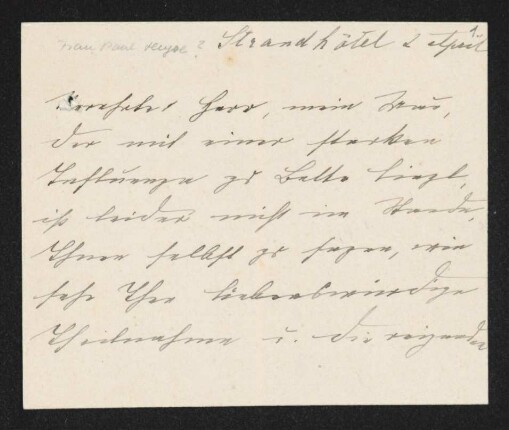 Frau Paul Heyse?
Strandhôtel 2 April
Verehrter Herr, mein Mann,
der mit einer starken
Influenza zu Bette liegt,
ist leider nicht im Stande,
Ihnen selbst zu sagen, wie
sehr Ihre liebenswürdige
Theilnahme u. die reizenden